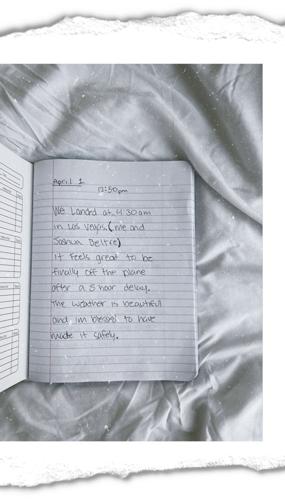 April 1
12:50pm
We Landed at 4:30am
in Las Vegas. (me and
Joshua Beltre)
it feels great to be
finally off the plane
after a 5 hour delay.
The weather is beautiful
and im blessed to have
made it safely.